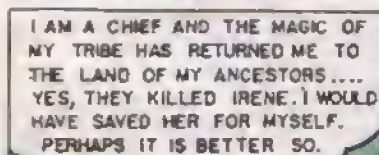 I AM A CHIEF AND THE MAGIC OF
MY TRIBE HAS RETURNED ME TO
THE LAND OF MY ANCESTORS....
YES, THEY KILLED IRENE. I WOULD
HAVE SAVED HER FOR MYSELF.
PERHAPS IT IS BETTER SO.